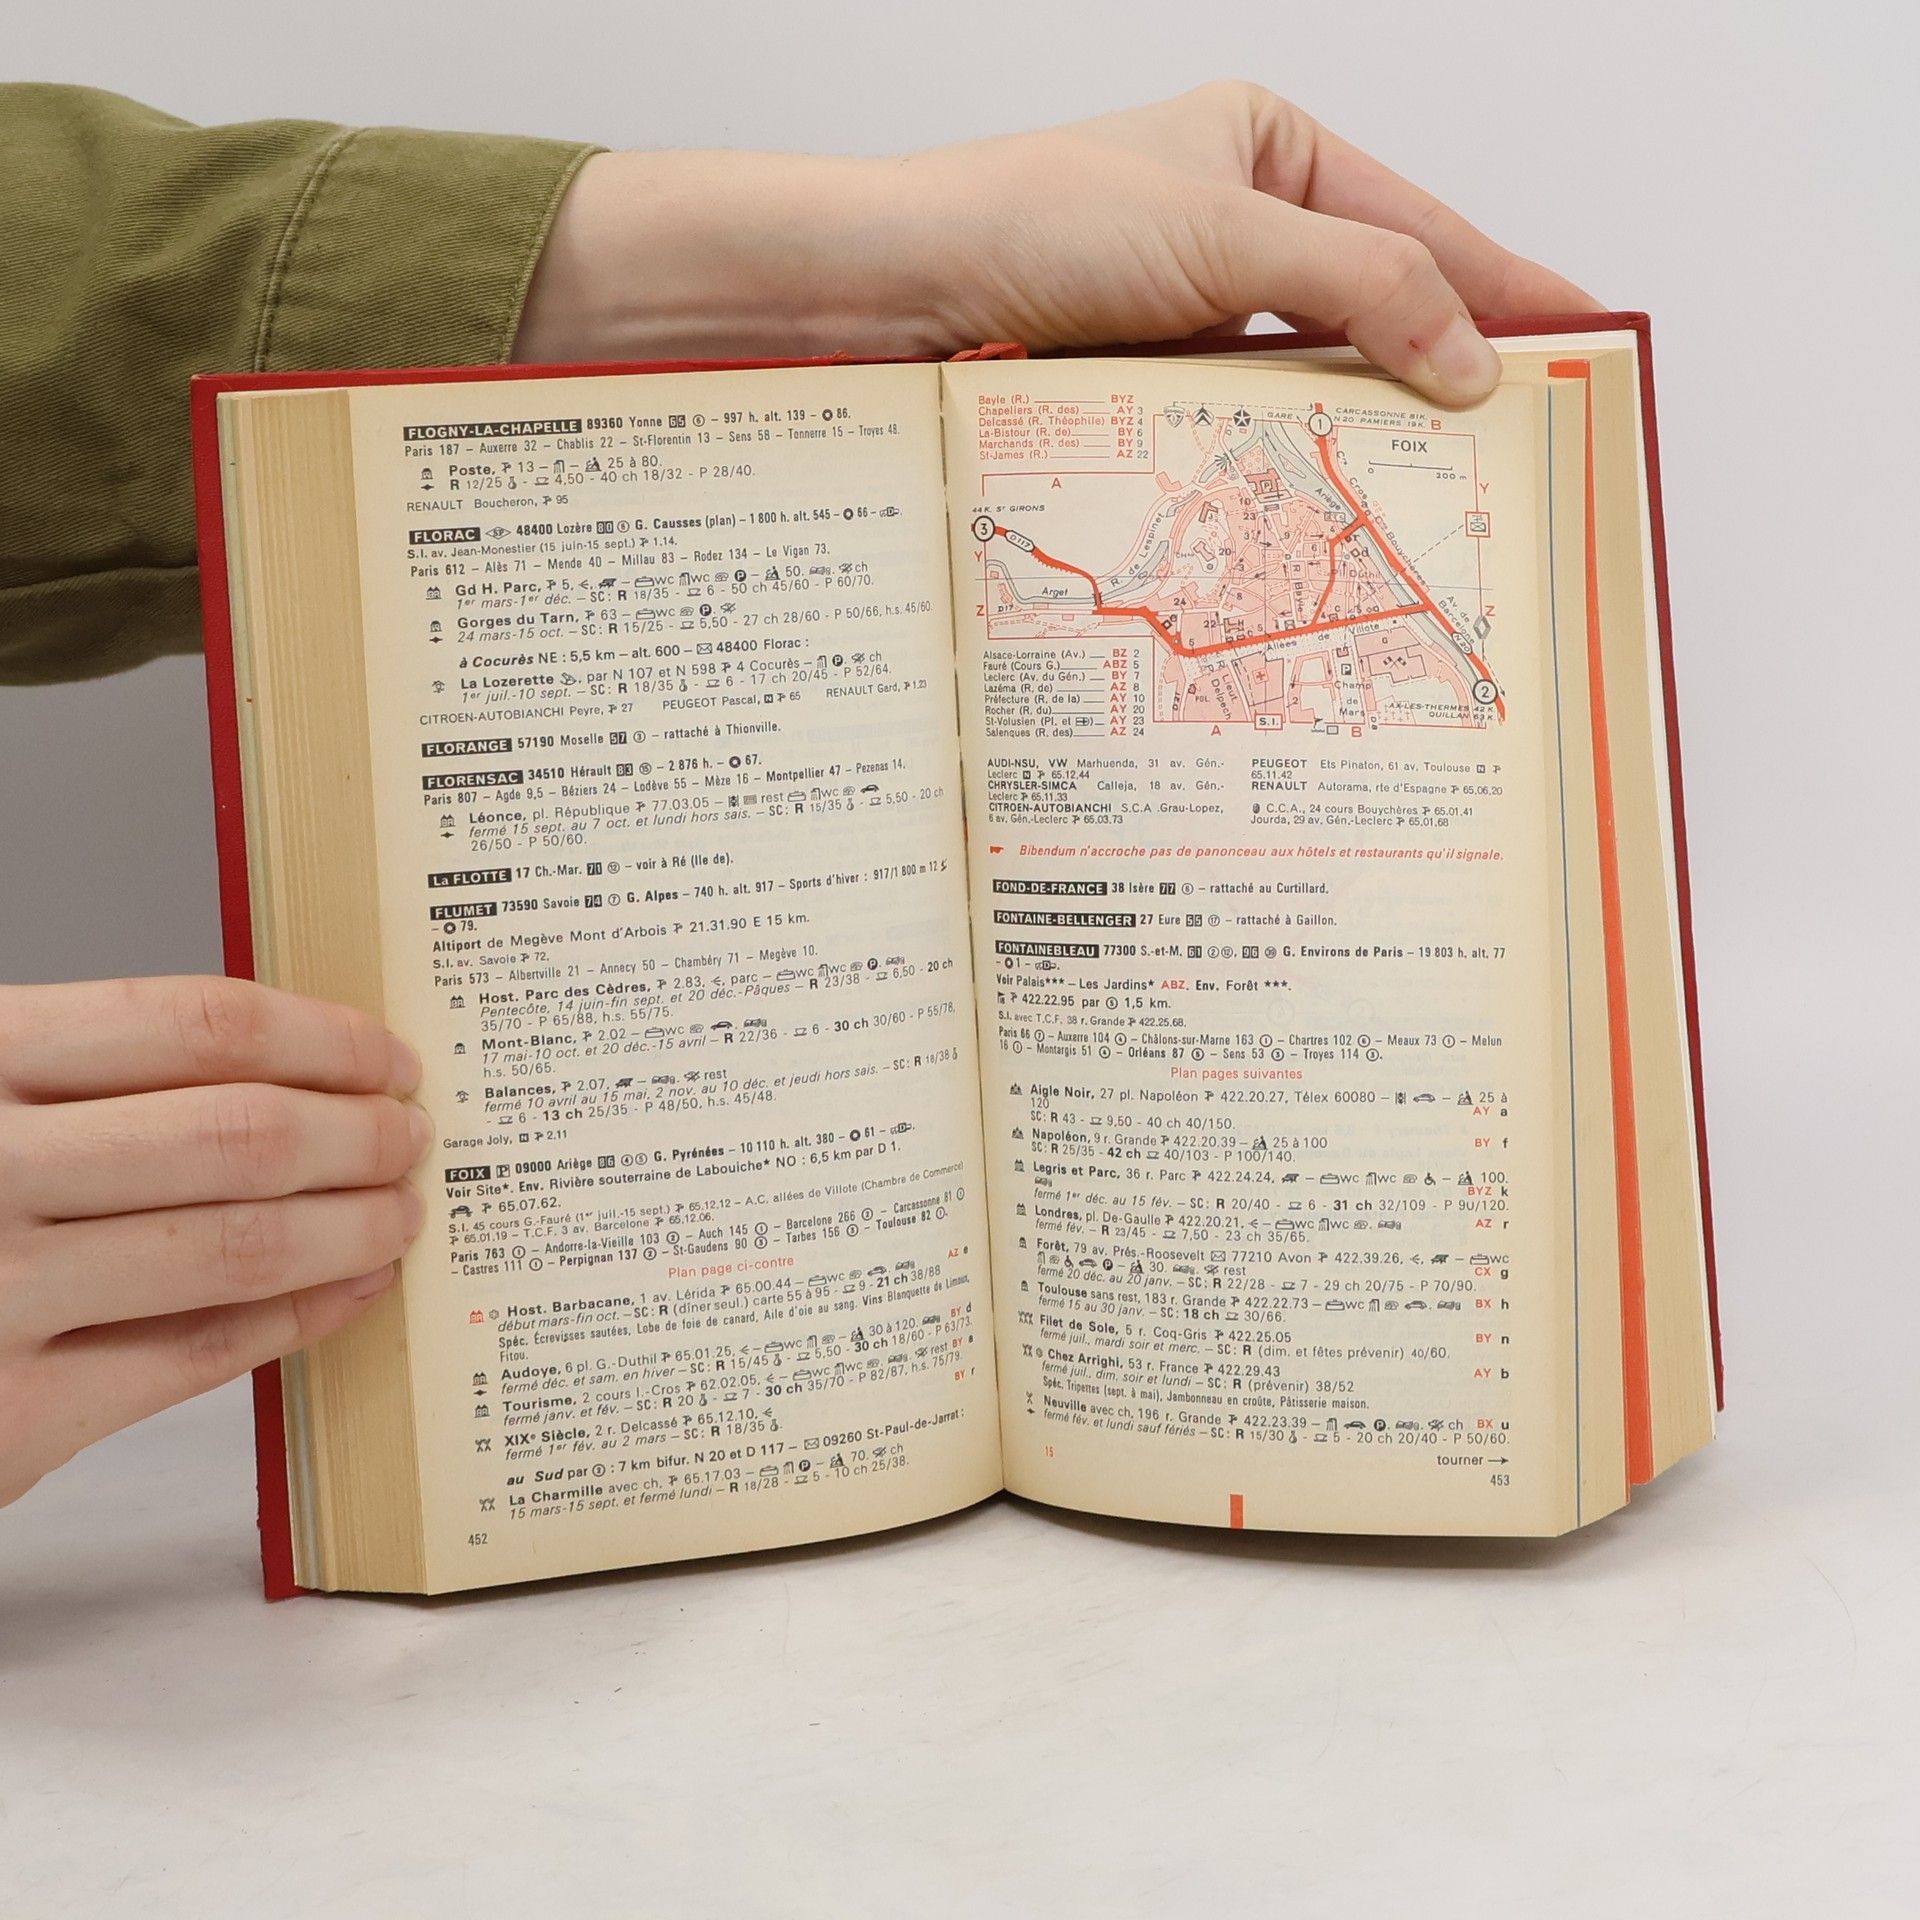 FLOGNY-LA-CHAPELLE 89360 Yonne 65 ⑥ – 997 h. alt. 139 – 86.
Paris 187 – Auxerre 32 – Chablis 22 – St-Florentin 13 – Sens 58 – Tonnerre 15 – Troyes 48.
Poste, 13 – – 25 à 80.
R 12/25 - 4,50 - 40 ch 18/32 - P 28/40.
RENAULT Boucheron, 95
FLORAC 48400 Lozère 80 ⑥ G. Causses (plan) – 1 800 h. alt. 545 – 66 –
S.I. av. Jean-Monestier (15 juin-15 sept.) 1.14.
Paris 612 – Alès 71 – Mende 40 – Millau 83 – Rodez 134 – Le Vigan 73.
Gd H. Parc, 5, – wc wc P – 50. ch
1er mars-1er déc. – SC: R 18/35 - 6 - 50 ch 45/60 - P 60/70.
Gorges du Tarn, 63 – wc P.
24 mars-15 oct. – SC: R 15/25 - 5,50 - 27 ch 28/60 - P 50/66, h.s. 45/60.
à Cocurès NE : 5,5 km – alt. 600 – 48400 Florac :
La Lozerette, par N 107 et N 598 4 Cocurès – P. ch
1er juil.-10 sept. – SC: R 18/35 - 6 - 17 ch 20/45 - P 52/64.
CITROEN-AUTOBIANCHI Peyre, 27 PEUGEOT Pascal, N 65 RENAULT Gard, 1.23
FLORANGE 57190 Moselle 57 ③ – rattaché à Thionville.
FLORENSAC 34510 Hérault 83 ⑮ – 2 876 h. – 67.
Paris 807 – Agde 9,5 – Béziers 24 – Lodève 55 – Mèze 16 – Montpellier 47 – Pezenas 14.
Léonce, pl. République 77.03.05 – rest wc
fermé 15 sept. au 7 oct. et lundi hors sais. – SC: R 15/35 - 5,50 - 20 ch
26/50 - P 50/60.
La FLOTTE 17 Ch.-Mar. 71 ⑫ – voir à Ré (Ile de).
FLUMET 73590 Savoie 74 ⑦ G. Alpes – 740 h. alt. 917 – Sports d'hiver : 917/1 800 m 12
– 79.
Altiport de Megève Mont d'Arbois 21.31.90 E 15 km.
S.I. av. Savoie 72.
Paris 573 – Albertville 21 – Annecy 50 – Chambéry 71 – Megève 10.
Host. Parc des Cèdres, 2.83, parc – wc wc P.
Pentecôte, 14 juin-fin sept. et 20 déc.-Pâques – R 23/38 - 6,50 - 20 ch
35/70 - P 65/88, h.s. 55/75.
Mont-Blanc, 2.02 – wc
17 mai-10 oct. et 20 déc.-15 avril – R 22/36 - 6 - 30 ch 30/60 - P 55/78,
h.s. 50/65.
Balances, 2.07, – rest
fermé 10 avril au 15 mai, 2 nov. au 10 déc. et jeudi hors sais. – SC: R 18/38
- 6 - 13 ch 25/35 - P 48/50, h.s. 45/48.
Garage Joly, N 2.11
FOIX P 09000 Ariège 86 ④⑤ G. Pyrénées – 10 110 h. alt. 380 – 61 –
Voir Site*. Env. Rivière souterraine de Labouiche* NO : 6,5 km par D 1.
65.07.62.
S.I. 45 cours G.-Fauré (1er juil.-15 sept.) 65.12.12 – A.C. allées de Villote (Chambre de Commerce)
65.01.19 – T.C.F. 3 av. Barcelone 65.12.06.
Paris 763 ① – Andorre-la-Vieille 103 ② – Auch 145 ① – Barcelone 266 ② – Carcassonne 81 ①
– Castres 111 ① – Perpignan 137 ② – St-Gaudens 90 ③ – Tarbes 156 ③ – Toulouse 82 ①.
Plan page ci-contre
Host. Barbacane, 1 av. Lérida 65.00.44 – wc AZ e
début mars-fin oct. – SC: R (dîner seul.) carte 55 à 95 - 9 - 21 ch 38/88
Spéc. Écrevisses sautées, Lobe de foie de canard, Aile d'oie au sang. Vins Blanquette de Limoux,
Fitou.
Audoye, 6 pl. G.-Duthil 65.01.25, – wc – 30 à 120. BY d
fermé déc. et sam. en hiver – SC: R 15/45 - 5,50 - 30 ch 18/60 - P 63/73.
Tourisme, 2 cours I.-Cros 62.02.05, – wc wc rest BY
fermé janv. et fév. – SC: R 20 - 7 - 30 ch 35/70 - P 82/87, h.s. 75/79.
XIXe Siècle, 2 r. Delcassé 65.12.10, BY r
fermé 1er fév. au 2 mars – SC: R 18/35
au Sud par ② : 7 km bifur. N 20 et D 117 – 09260 St-Paul-de-Jarrat :
La Charmille avec ch, 65.17.03 – P – 70. ch
15 mars-15 sept. et fermé lundi – R 18/28 - 5 - 10 ch 25/38.
452
Bayle (R.) BYZ
Chapeliers (R. des) AY 3
Delcassé (R. Théophile) BYZ 4
La-Bistour (R. de) BY 6
Marchands (R. des) BY 9
St-James (R.) AZ 22
GARE
CARCASSONNE 81K.
N20 PAMIERS 19K.
B
FOIX
0 200 m
A
Y
44 K. ST GIRONS
D117
R. de Lespinet
Ariège
Cours
Bouychères
Pl. Duthil
R. Bayle
Arget
D17
Z
Allées de Villote
Av. de Barcelone
N20
R. Lieut. Delpech
POL.
Champ de Mars
S.I.
AX-LES-THERMES 42 K.
QUILLAN 63 K.
A
B
Alsace-Lorraine (Av.) BZ 2
Fauré (Cours G.) ABZ 5
Leclerc (Av. du Gén.) BY 7
Lazéma (R. de) AZ 8
Préfecture (R. de la) AY 10
Rocher (R. du) AY 20
St-Volusien (Pl. et) AY 23
Salenques (R. des) AZ 24
AUDI-NSU, VW Marhuenda, 31 av. Gén.-
Leclerc N 65.12.44
CHRYSLER-SIMCA Calleja, 18 av. Gén.-
Leclerc 65.11.33
CITROEN-AUTOBIANCHI S.C.A. Grau-Lopez,
6 av. Gén.-Leclerc 65.03.73
PEUGEOT Ets Pinaton, 61 av. Toulouse N
65.11.42
RENAULT Autorama, rte d'Espagne 65.06.20
C.C.A., 24 cours Bouychères 65.01.41
Jourda, 29 av. Gén.-Leclerc 65.01.68
Bibendum n'accroche pas de panonceau aux hôtels et restaurants qu'il signale.
FOND-DE-FRANCE 38 Isère 77 ⑥ – rattaché au Curtillard.
FONTAINE-BELLENGER 27 Eure 55 ⑰ – rattaché à Gaillon.
FONTAINEBLEAU 77300 S.-et-M. 61 ②⑫, 96 G. Environs de Paris – 19 803 h. alt. 77
– 1 –
Voir Palais*** – Les Jardins* ABZ. Env. Forêt ***.
422.22.95 par ⑤ 1,5 km.
S.I. avec T.C.F. 38 r. Grande 422.25.68.
Paris 66 ⑦ – Auxerre 104 ④ – Châlons-sur-Marne 163 ① – Chartres 102 ⑥ – Meaux 73 ① – Melun
16 ① – Montargis 51 ④ – Orléans 87 ⑤ – Sens 53 ③ – Troyes 114 ③.
Plan pages suivantes
Aigle Noir, 27 pl. Napoléon 422.20.27, Télex 60080 – – 25 à
120 AY a
SC: R 43 - 9,50 - 40 ch 40/150.
Napoléon, 9 r. Grande 422.20.39 – 25 à 100 BY f
SC: R 25/35 - 42 ch 40/103 - P 100/140.
Legris et Parc, 36 r. Parc 422.24.24, – wc wc – 100.
BYZ k
fermé 1er déc. au 15 fév. – SC: R 20/40 - 6 - 31 ch 32/109 - P 90/120.
Londres, pl. De-Gaulle 422.20.21, – wc wc AZ r
fermé fév. – R 23/45 - 7,50 - 23 ch 35/65.
Forêt, 79 av. Prés.-Roosevelt 77210 Avon 422.39.26, – wc
P – 30. rest CX g
fermé 20 déc. au 20 janv. – SC: R 22/28 - 7 - 29 ch 20/75 - P 70/90.
Toulouse sans rest, 183 r. Grande 422.22.73 – wc BX h
fermé 15 au 30 janv. – SC: 18 ch 30/66.
Filet de Sole, 5 r. Coq-Gris 422.25.05 BY n
fermé juil., mardi soir et merc. – SC: R (dim. et fêtes prévenir) 40/60.
Chez Arrighi, 53 r. France 422.29.43 AY b
fermé juil., dim. soir et lundi – SC: R (prévenir) 38/52
Spéc. Tripettes (sept. à mai), Jambonneau en croûte, Pâtisserie maison.
Neuville avec ch, 196 r. Grande 422.23.39 – P. ch BX u
fermé fév. et lundi sauf fériés – SC: R 15/30 - 5 - 20 ch 20/40 - P 50/60.
15
tourner →
453